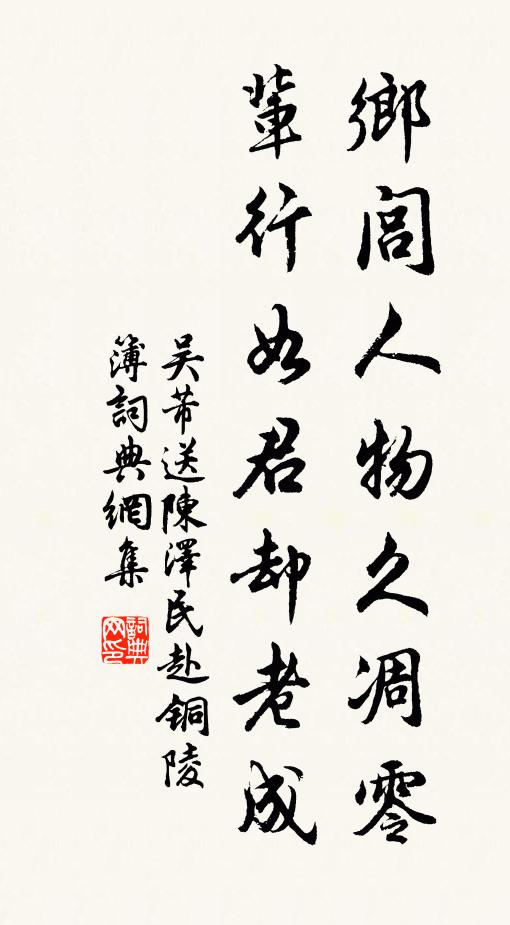 鄉閭人物久凋零
輩行如君却老成
吴芾送陳澤民赴铜陵
簿詞典網集
詞典网印